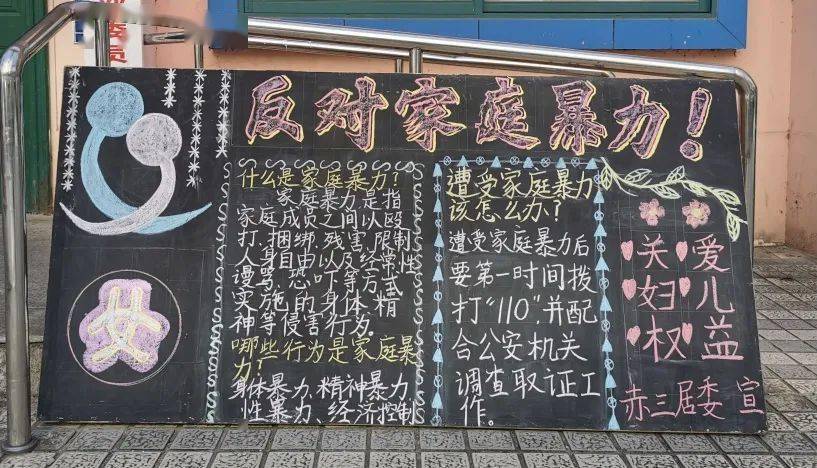 委员
反对家庭暴力!
什么是家庭暴力?
家庭暴力是指
家庭成员之间以殴
打、捆绑、残害、限制
人身自由以及经常性
谩骂、恐吓等方式
实施的身体、精
神等侵害行为。
哪些行为是家庭暴
力?
身体暴力、精神暴力、
性暴力、经济控制
遭受家庭暴力
该怎么办?
遭受家庭暴力后
要第一时间拨
打“110”,并配
合公安机关
调查取证工
作。
关爱
妇儿
权益
女
赤三居委 宣